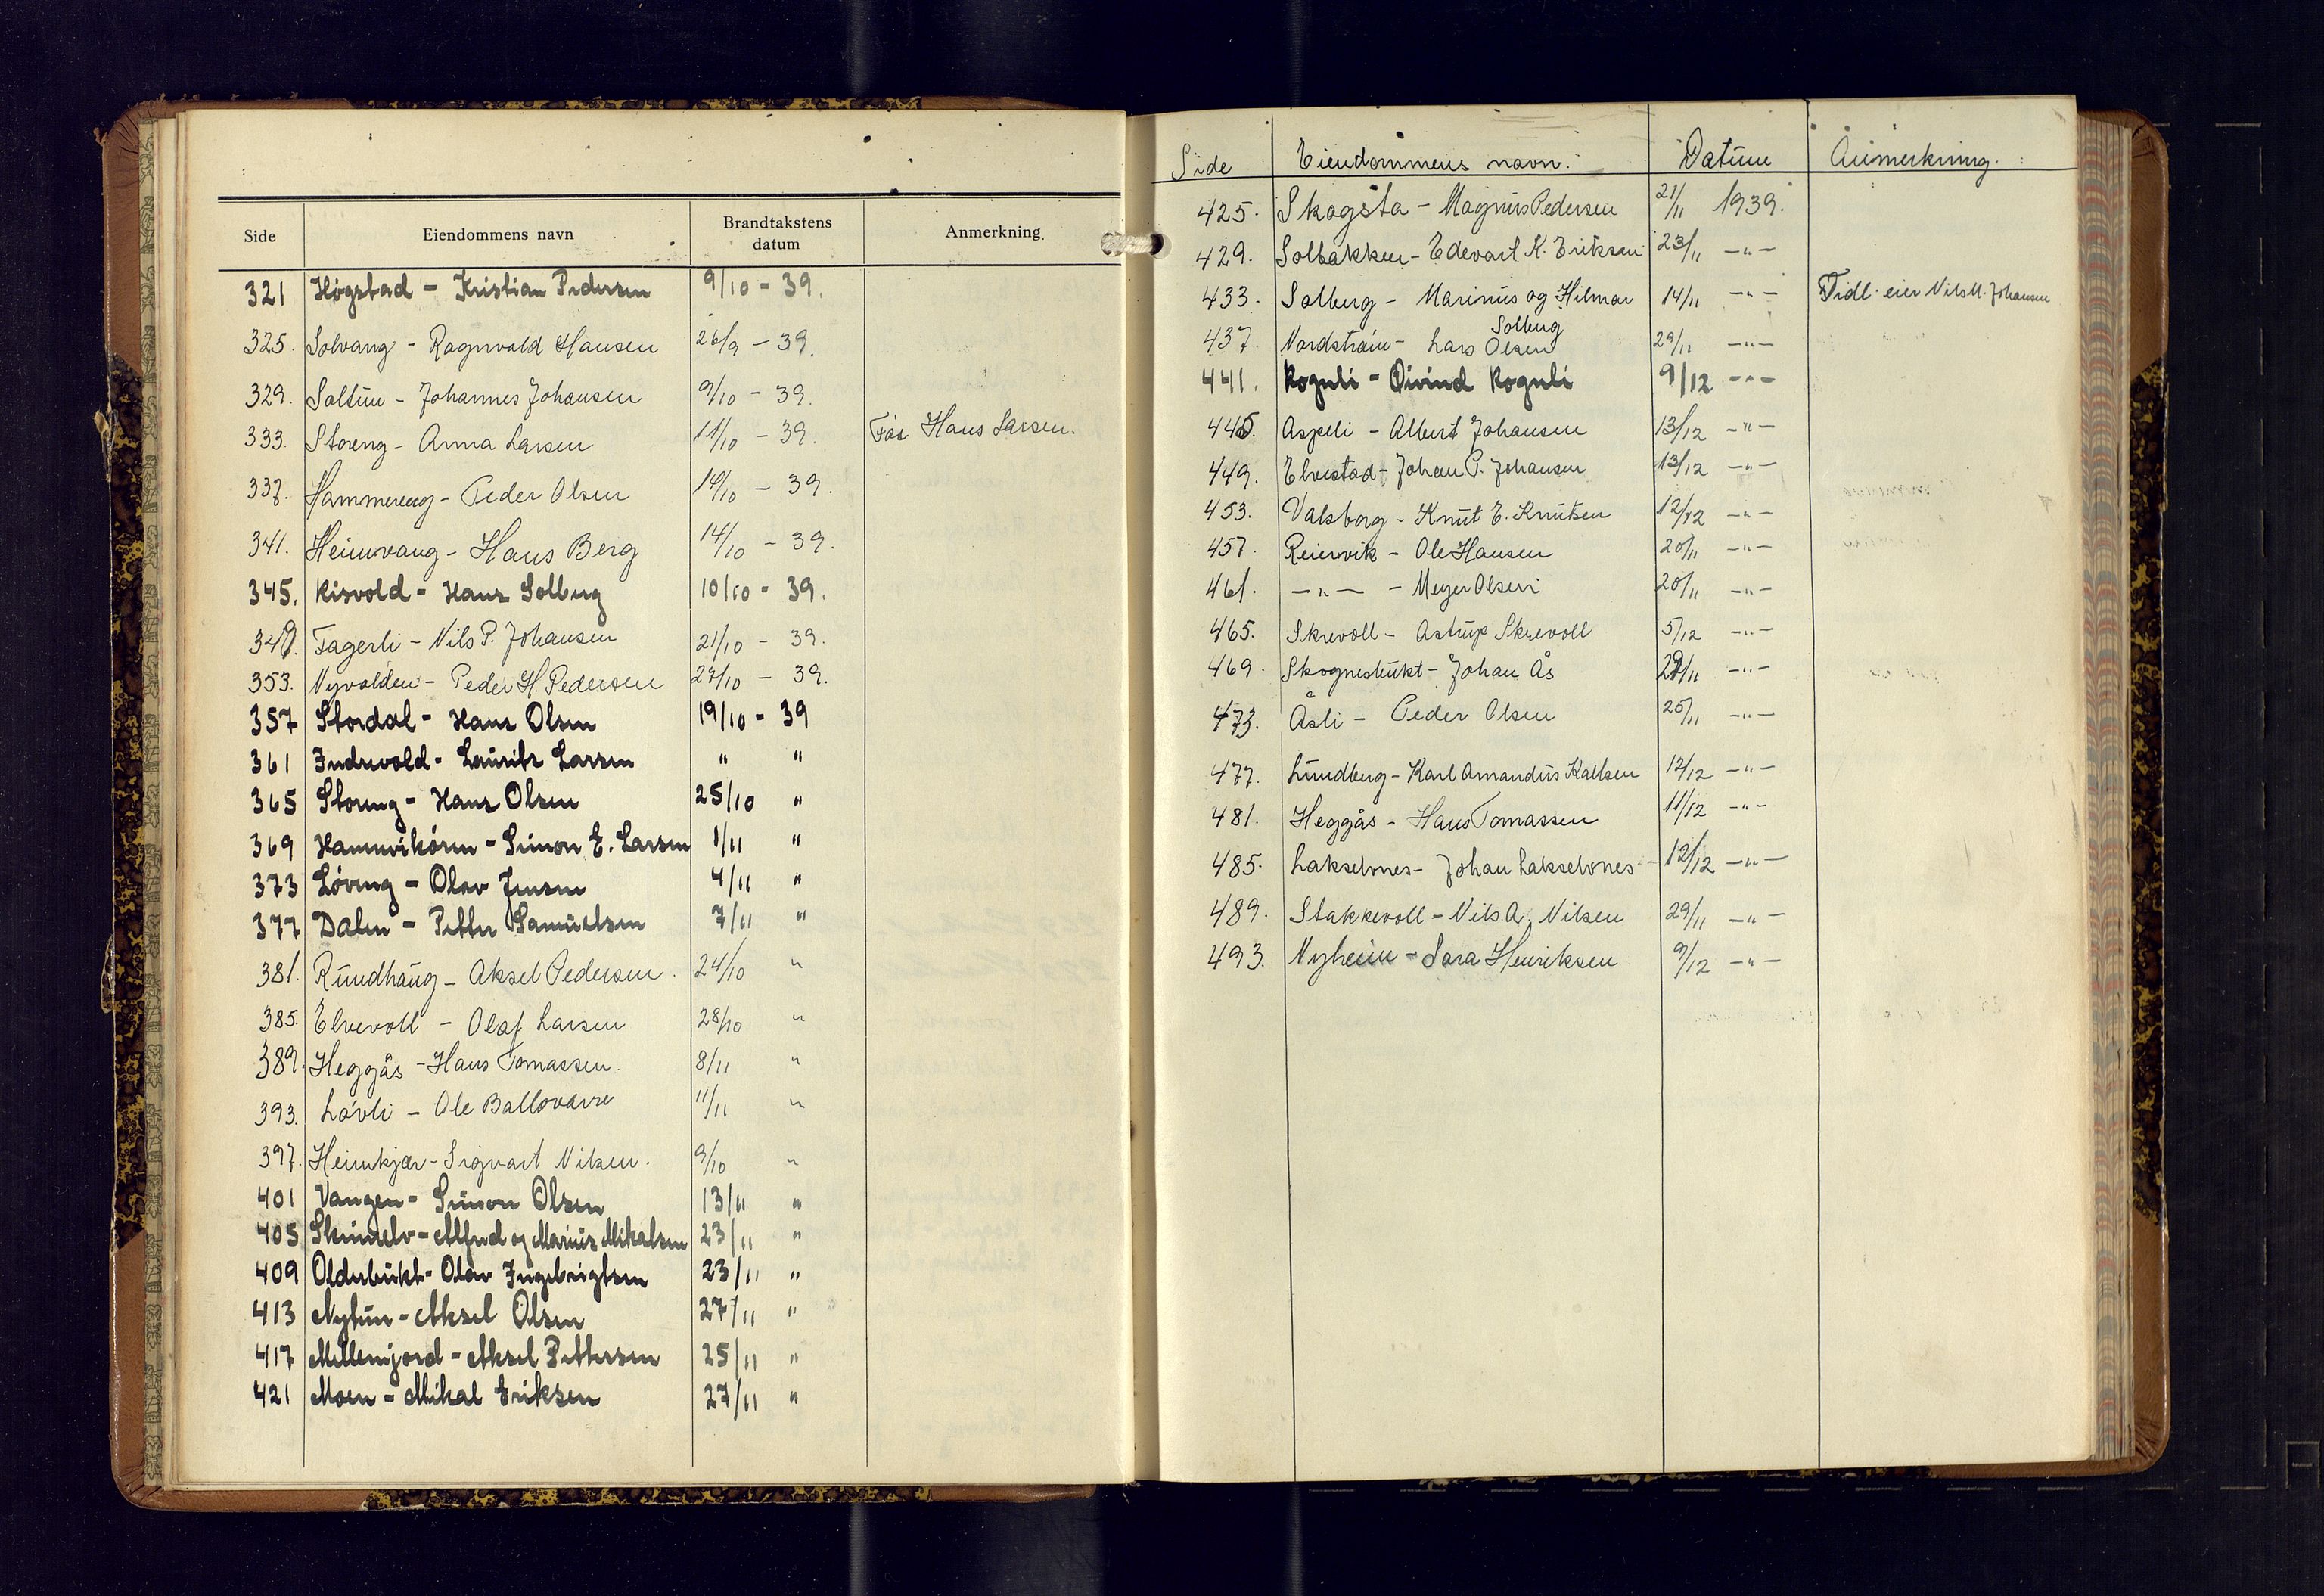 Side Eiendommens navn Brandtakstens datum Anmerkning
321 Høgstad - Kristian Pedersen 9/10 - 39.
325. Solvang - Ragnvald Hansen 26/9 - 39.
329. Soltun - Johannes Johansen 9/10 - 39.
333. Storeng - Anna Larsen 11/10 - 39. Før Hans Larsen.
337. Hammereng - Peder Olsen 14/10 - 39.
341. Heimvang - Hans Berg 14/10 - 39.
345. Risvold - Hans Solberg 10/10 - 39.
349. Fagerli - Nils P. Johansen 21/10 - 39.
353. Nyvolden - Peder H. Pedersen 27/10 - 39.
357 Stordal - Hans Olsen 19/10 - 39
361 Indrevold - Lauritz Larsen " "
365 Storeng - Hans Olsen 25/10 "
369 Hamnvikøren - Simon E. Larsen 1/11 "
373 Løveng - Olav Jensen 4/11 "
377 Dalen - Petter Samuelsen 7/11 "
381. Rundhaug - Aksel Pedersen. 24/10 "
385. Elvevoll - Olaf Larsen 28/10 "
389. Heggås - Hans Tomassen. 8/11 "
393. Løvli - Ole Ballovarre 11/11 "
397. Heimkjær - Sigvart Nilsen. 9/10 "
401 Vangen - Simon Olsen 13/11 "
405 Skinnelv - Alfred og Marius Mikalsen 23/11 "
409 Olderbukt - Olav Ingebrigtsen 23/11 "
413 Nytun - Aksel Olsen 27/11 "
417 Mellemjord - Aksel Pettersen 25/11 "
421 Moen - Mikal Eriksen 27/11 "
Side Eiendommens navn. Datum Anmerkning.
425. Skogsta - Magnus Pedersen 21/11 1939.
429. Solbakken - Edevart K. Eriksen 23/11 -"-
433. Solberg - Marinus og Hilmar 14/11 -"- Tidl. eier Nils M. Johansen
Solberg
437. Nordstraum - Lars Olsen 29/11 -"-
441. Rognli - Øivind Rognli 9/12 -"-
445. Aspeli - Albert Johansen 13/12 -"-
449. Elvestad - Johan P. Johansen 13/12 -"-
453. Valsborg - Knut E. Knutsen 12/12 -"-
457. Reiervik - Ole Hansen 20/11 -"-
461. -"- - Meyer Olsen 20/11 -"-
465. Skrevoll - Astrup Skrevoll 5/12 -"-
469. Skognesbukt - Johan Ås 27/11 -"-
473. Åsli - Peder Olsen 25/11 -"-
477. Lundberg - Karl Amandus Karlsen 12/12 -"-
481. Heggås - Hans Tomassen 11/12 -"-
485. Lakselvnes - Johan Lakselvnes 12/12 -"-
489. Stakkevoll - Nils A. Nilsen 29/11 -"-
493. Nyheim - Sara Henriksen 9/12 -"-